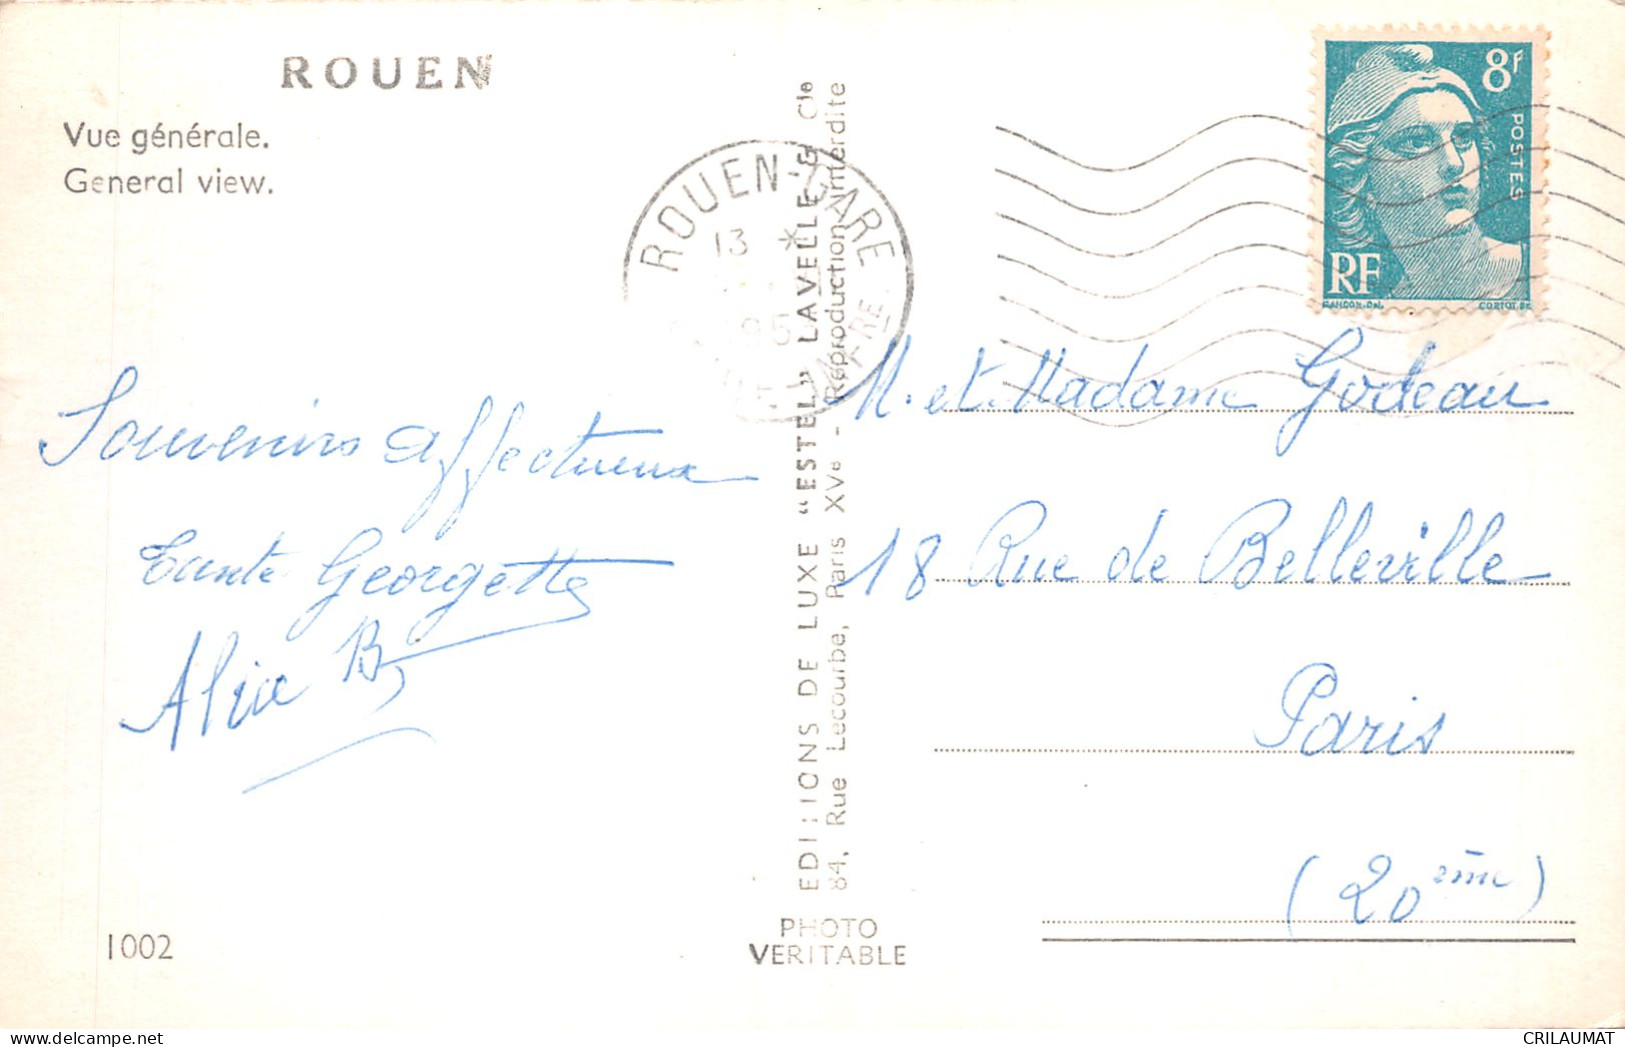 ROUEN
Vue générale.
General view.
Souvenirs affectueux
Tante Georgette
Alice B
1002
EDITIONS DE LUXE "ESTEL" LAVELLE & Cie
84, Rue Lecourbe, Paris XVe - Reproduction interdite
PHOTO
VERITABLE
ROUEN-GARE
13 *
8f
POSTES
RF
GANDON-DEL.
CORTOT SC.
M. et Madame Godeau
18 Rue de Belleville
Paris
(20ème)
CRILAUMAT